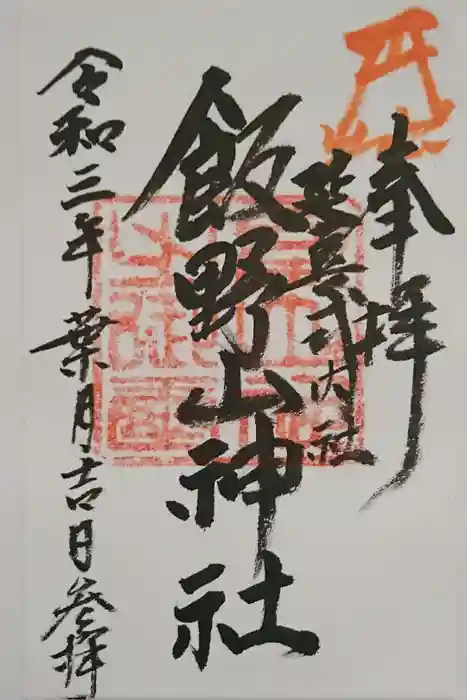 奉拝
延喜式内社
飯野山神社
令和三年葉月吉日参拝